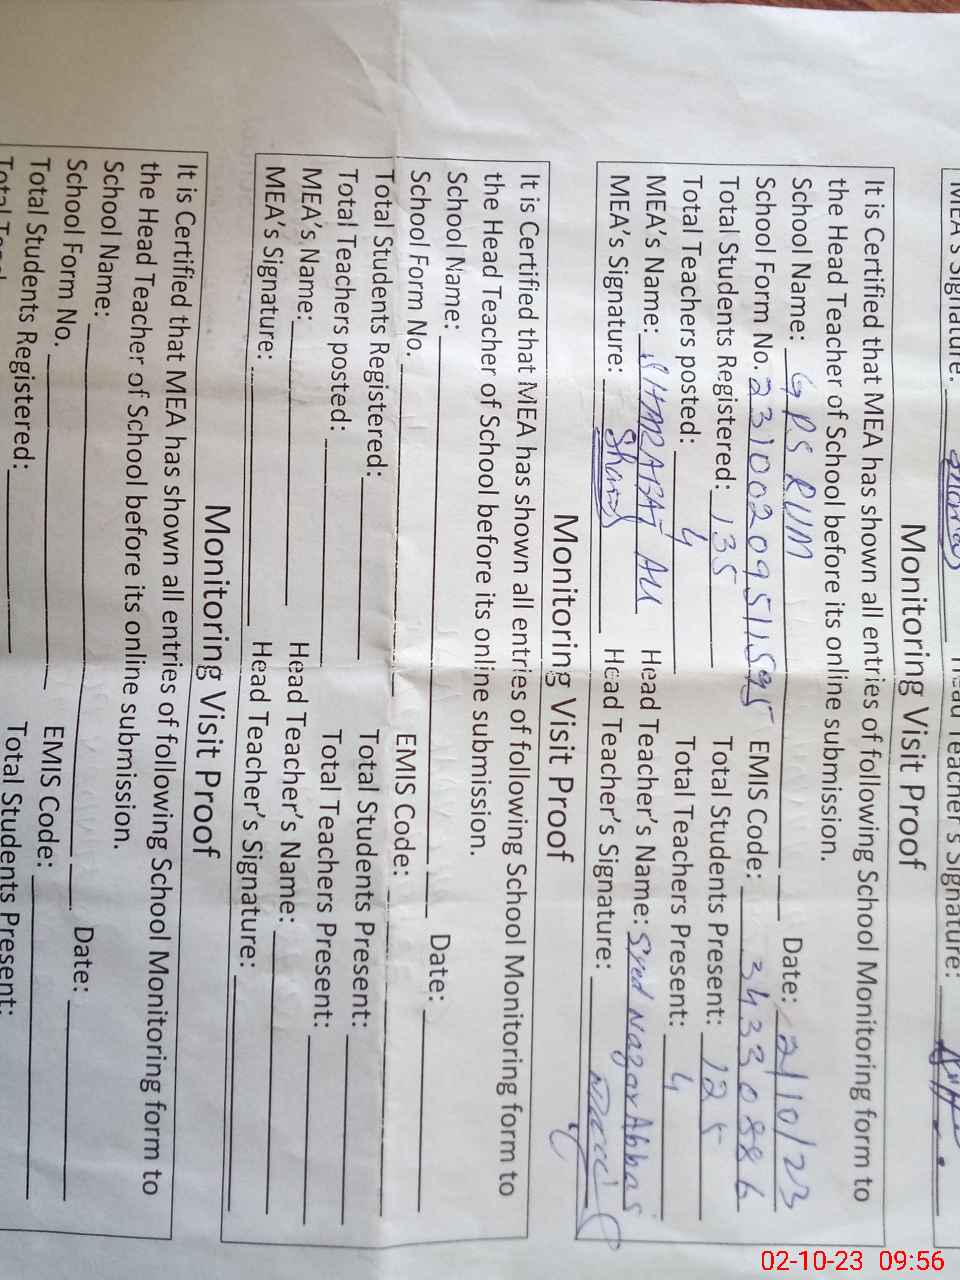 MEA's Signature: Head Teacher's Signature:
Monitoring Visit Proof
It is Certified that MEA has shown all entries of following School Monitoring form to
the Head Teacher of School before its online submission.
School Name: GPS RUM Date: 2/10/23
School Form No. 23100209511595 EMIS Code: 34330886
Total Students Registered: 135 Total Students Present: 125
Total Teachers posted: 4 Total Teachers Present: 4
MEA's Name: SHARAFAT ALI Head Teacher's Name: Syed Nazar Abbas
MEA's Signature: Head Teacher's Signature:
Monitoring Visit Proof
It is Certified that MEA has shown all entries of following School Monitoring form to
the Head Teacher of School before its online submission.
School Name: Date:
School Form No. EMIS Code:
Total Students Registered: Total Students Present:
Total Teachers posted: Total Teachers Present:
MEA's Name: Head Teacher's Name:
MEA's Signature: Head Teacher's Signature:
Monitoring Visit Proof
It is Certified that MEA has shown all entries of following School Monitoring form to
the Head Teacher of School before its online submission.
School Name: Date:
School Form No. EMIS Code:
Total Students Registered: Total Students Present:
02-10-23 09:56